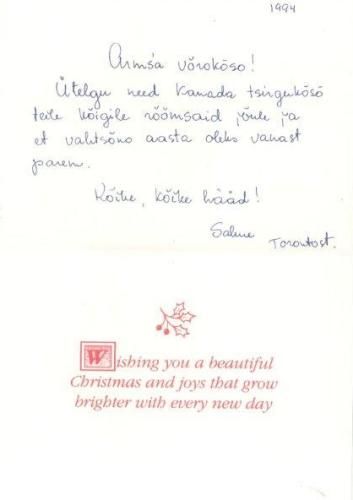 1994
Armsa võrokõso!
Ütelgu need Kanada tsirgukõsõ
teile kõigile rõõmsaid jõule ja
et vahtsõno aasta oleks vanast
parem.
Kõike, kõike hääd!
Salme
Torontost.
Wishing you a beautiful
Christmas and joys that grow
brighter with every new day